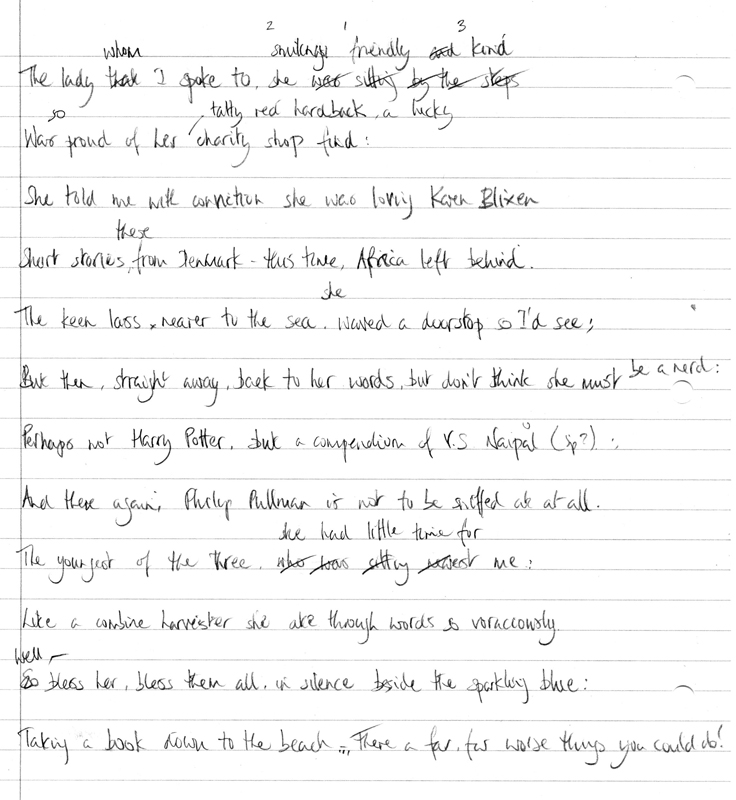 2 1 3
whom smilingly friendly and kind
The lady that I spoke to, she was sitting by the steps
so tatty red hardback, a lucky
Was proud of her charity shop find:
She told me with conviction she was loving Karen Blixen
these
Short stories, from Denmark - this time, Africa left behind.
she
The keen lass, nearer to the sea, waved a doorstop so I'd see;
But then, straight away, back to her words, but don't think she must be a nerd:
Perhaps not Harry Potter, but a compendium of V.S Naipal (sp?);
And there again, Philip Pullman is not to be sniffed at at all.
she had little time for
The youngest of the three, who was sitting nearest me;
Like a combine harvester she ate through words so voraccously.
Well -
So bless her, bless them all, in silence beside the sparkling blue:
Taking a book down to the beach ... There a far, far worse things you could do!